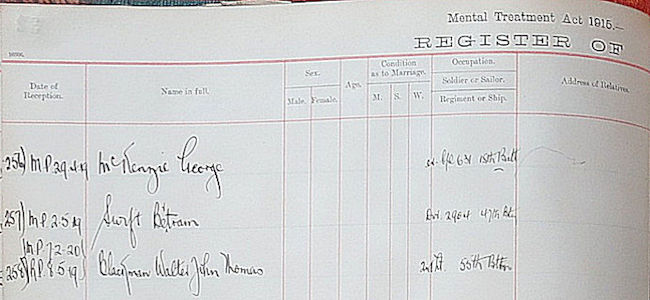 Mental Treatment Act 1915.—
REGISTER OF
Date of Reception.
Name in full.
Sex.
Male. Female.
Age.
Condition as to Marriage.
M. S. W.
Occupation.
Soldier or Sailor.
Regiment or Ship.
Address of Relatives.
256) M.P. 29.4.19 McKenzie George 15th Batt
257) M.P. 2.5.19 Swift Betram 2964 47th Bt.
M.P. 7.2.20
258) R.P. 8.5.19 Blackman Walter John Thomas 55th Bttn